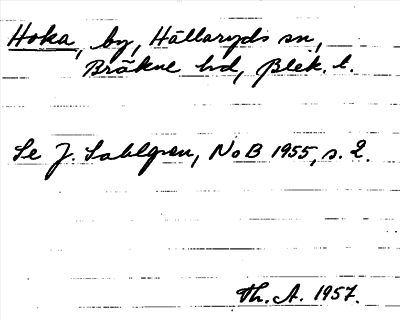 Hoka, by, Hällaryds sn,
Bräkne hd, Blek. l.
Se J. Sahlgren, NoB 1955, s. 2.
Th. A. 1957.